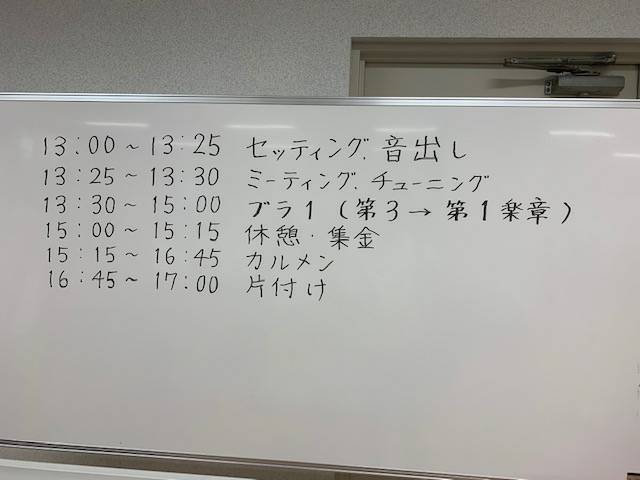 13:00～13:25 セッティング.音出し
13:25～13:30 ミーティング.チューニング
13:30～15:00 ブラ1（第3→第1楽章）
15:00～15:15 休憩・集金
15:15～16:45 カルメン
16:45～17:00 片付け